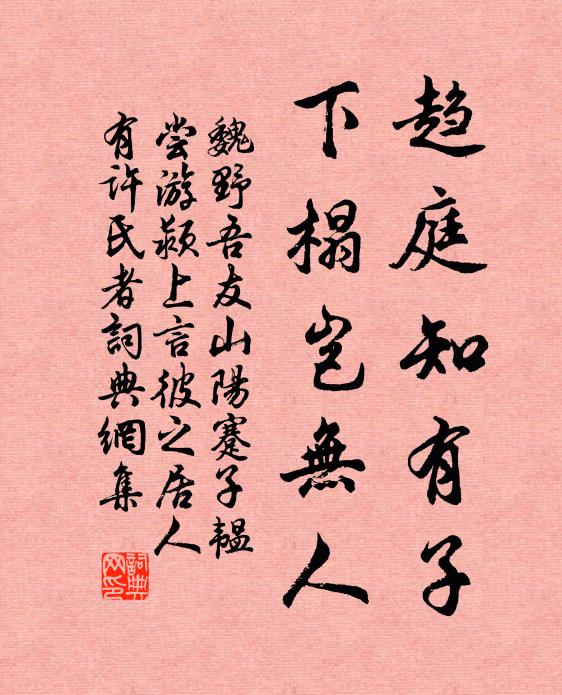 趋庭知有子
下榻岂無人
魏野吾友山陽蹇子韞
尝游颍上言彼之居人
有许氏者詞典網集
詞典
网印